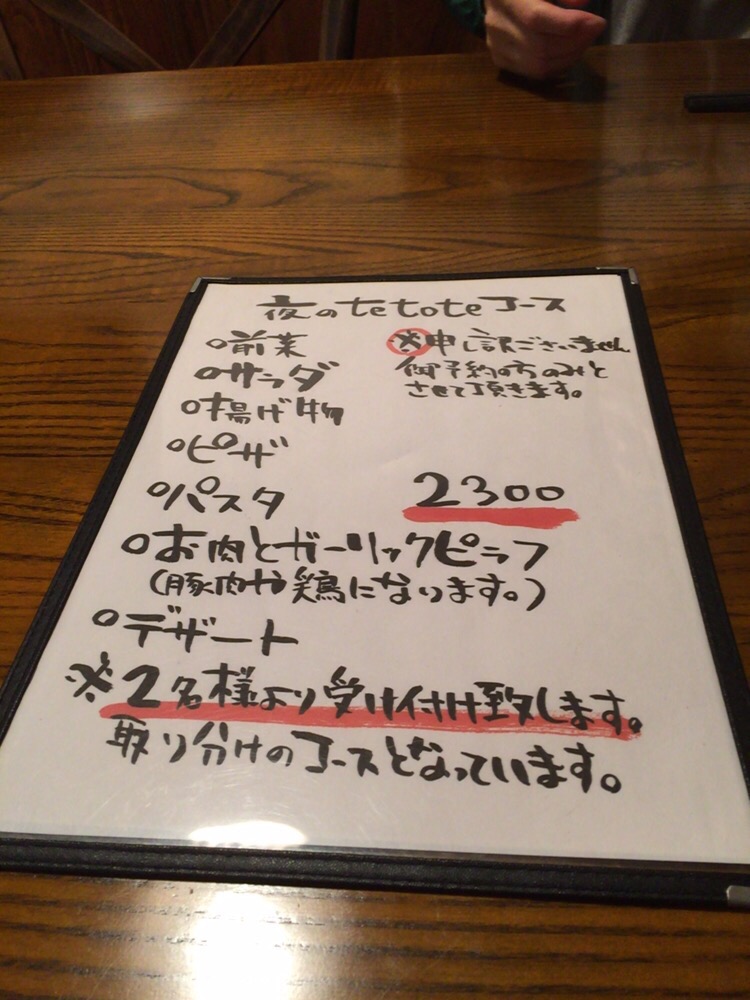 夜のtetoteコース
○前菜
○サラダ
○揚げ物
○ピザ
○パスタ
○お肉とガーリックピラフ
(豚肉や鶏になります。)
○デザート
※申し訳ございません
御予約の方のみと
させて頂きます。
2300
※2名様より受け付け致します。
取り分けのコースとなっています。